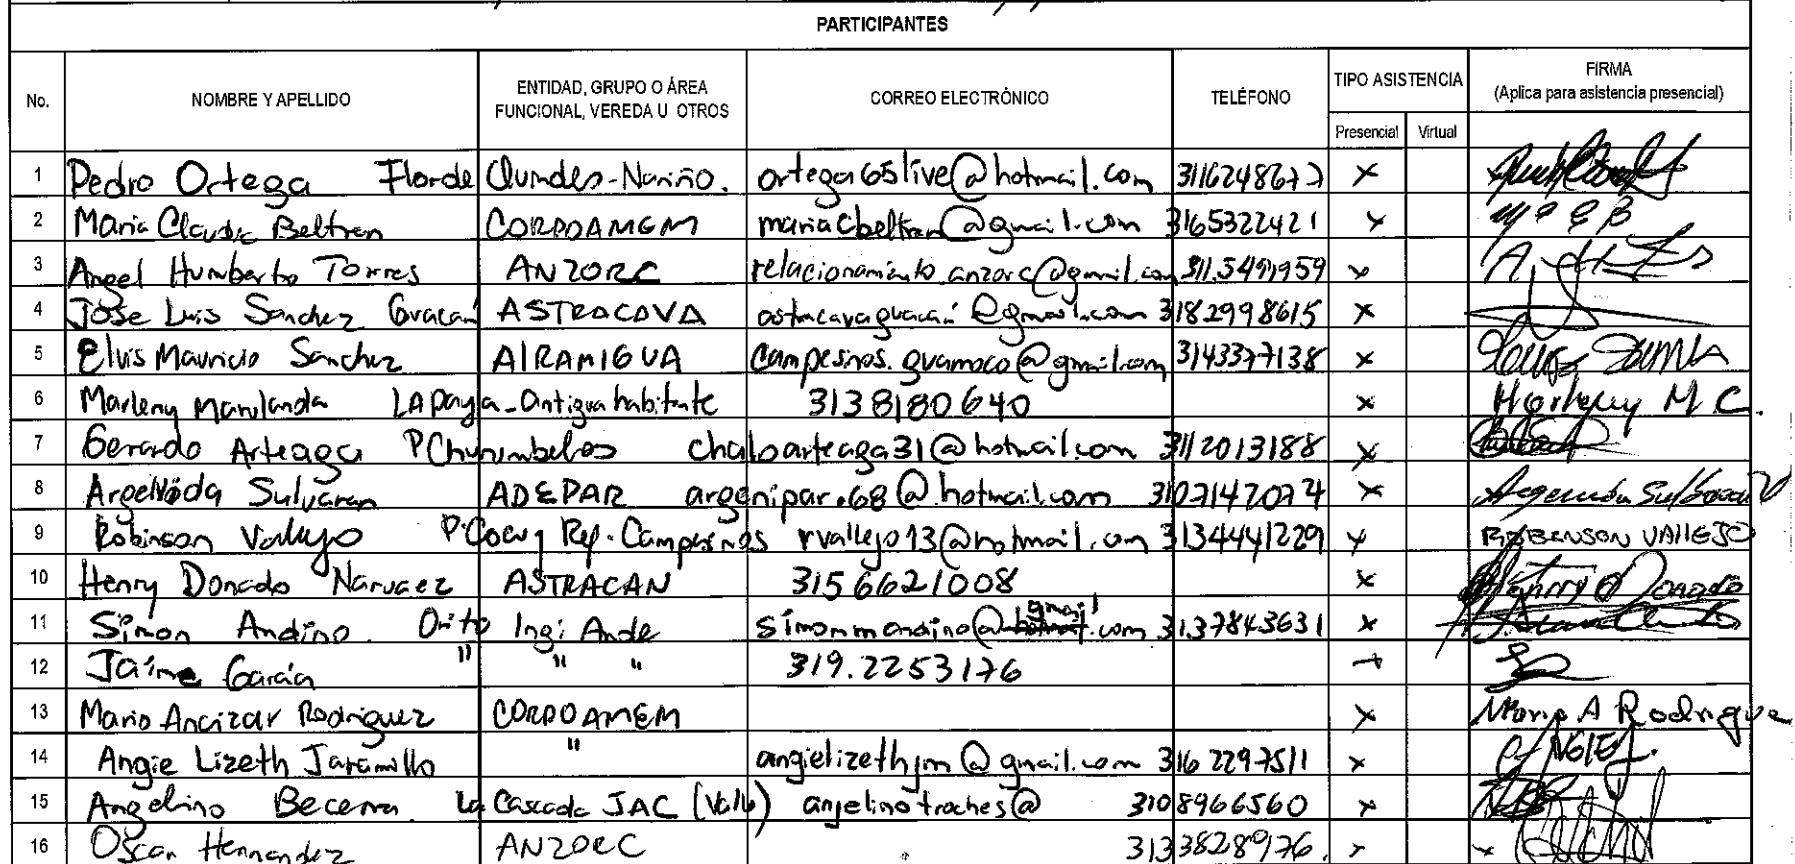 PARTICIPANTES
No. NOMBRE Y APELLIDO ENTIDAD, GRUPO O ÁREA FUNCIONAL, VEREDA U OTROS CORREO ELECTRÓNICO TELÉFONO TIPO ASISTENCIA FIRMA
(Aplica para asistencia presencial)
Presencial Virtual
1 Pedro Ortega Flor de Nariño. ortega65live@hotmail.com x
2 Maria Claudia Beltran CORPOAMEM mariacbeltran@gmail.com 3165322421 x
3 Angel Humberto Torres ANZORC relacionamiento.anzorc@gmail.com x
4 Jose Luis Sanchez Guacan ASTRACAVA @gmail.com 3182998615 x
5 Elvis Mauricio Sanchez AIRAMIGUA campesinos.guamoco@gmail.com 3143377138 x Elvis
6 Marleny Marulanda LA Paya - Antigua habitante 3138180640 x M C.
7 Gerardo Arteaga chaloarteaga31@hotmail.com 3112013188 x
8 ADEPAR argenipar.68@hotmail.com 3107147074 x
9 Robinson Vallejo Rep. Campesinos rvallejo13@hotmail.com 3134441229 x ROBENSON VALLEJO
10 Henry Donado Narvaez ASTRACAN 3156621008 x Henry Donado
11 Simon Andino. Orito Ingi Ande simonmandino@gmail.com 3137843631 x
12 Jaime Garcia " " " 319.2253176 x
13 Mario Ancizar Rodriguez CORPOAMEM x Mario A Rodrigue
14 Angie Lizeth Jaramillo " angielizethjm@gmail.com 316 2297511 x ANGIE J.
15 Angelino Becerra La Cascada JAC (Valle) anjelinotroches@ 3108966560 x
16 Oscar Hernandez ANZORC 3133828976. x